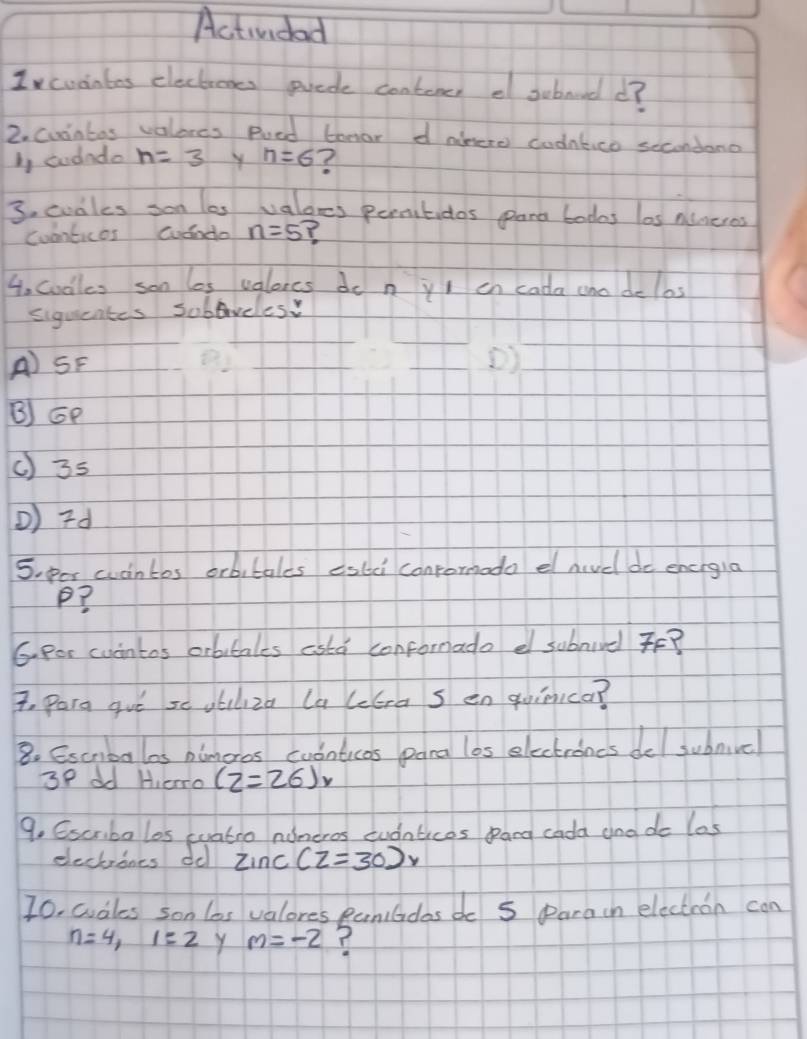 Actividad
1. cuántos electrones puede contener el subnivel d?
2. cuántos valores pued tomar el número cuántico secundario
l, cuando n=3 y n=6?
3. cuáles son los valores permitidos para todos los números
cuánticos cuando n=5?
4. Cuáles son los valores de n y l en cada uno de los
siguientes subniveles:
A) 5F
D)
B) 6p
C) 3s
D) 7d
5. por cuántos orbitales está conformado el nivel de energia
p?
6. Por cuántos orbitales está conformado el subnivel 7F?
7. Para qué se utiliza la letra S en química?
8. Escriba los números cuánticos para los electrónes del subnivel
3p del Hierro (Z=26).
9. Escriba los cuatro números cuánticos para cada uno de las
electrónes del zinc (Z=30).
10. cuáles son los valores permitidos de S para un electrón con
n=4, l=2 y m=-2?